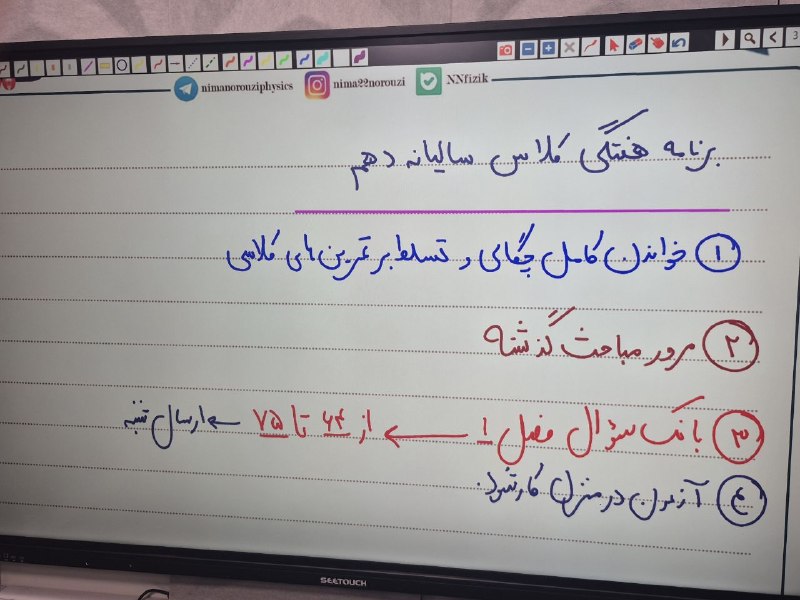 nimanorouziphysics nima22norouzi NNfizik
برنامه هفتگی کلاس سالیانه دهم
① خواندن کامل چگالی و تسلط بر تمرین های کلاسی
② مرور مباحث گذشته
③ بانک سؤال فصل ۱ ← از ۶۴ تا ۷۵ ← ارسال شنبه
④ آزمون در منزل کار شود.
SEETOUCH